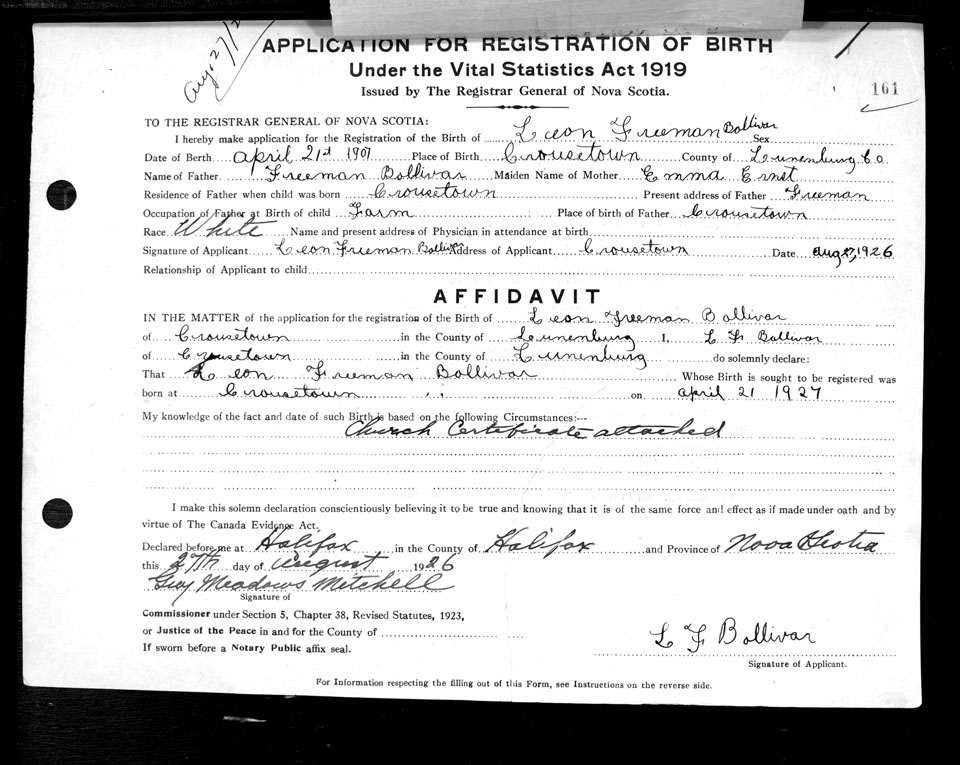 Aug. 27/2
APPLICATION FOR REGISTRATION OF BIRTH
Under the Vital Statistics Act 1919
Issued by The Registrar General of Nova Scotia.
161
TO THE REGISTRAR GENERAL OF NOVA SCOTIA:
I hereby make application for the Registration of the Birth of Leon Freeman Bollivar Sex
Date of Birth april 21st 1907 Place of Birth Crousetown County of Lunenburg Co.
Name of Father Freeman Bollivar Maiden Name of Mother Emma Ernst
Residence of Father when child was born Crousetown Present address of Father Freeman
Occupation of Father at Birth of child Farm Place of birth of Father Crousetown
Race White Name and present address of Physician in attendance at birth
Signature of Applicant Leon Freeman Bollivar Address of Applicant Crousetown Date aug 27, 1926
Relationship of Applicant to child
AFFIDAVIT
IN THE MATTER of the application for the registration of the Birth of Leon Freeman Bollivar
of Crousetown in the County of Lunenburg I, L F Bollivar
of Crousetown in the County of Lunenburg do solemnly declare:
That Leon Freeman Bollivar Whose Birth is sought to be registered was
born at Crousetown on april 21 1927
My knowledge of the fact and date of such Birth is based on the following Circumstances:--
Church Certificate attached
I make this solemn declaration conscientiously believing it to be true and knowing that it is of the same force and effect as if made under oath and by
virtue of The Canada Evidence Act.
Declared before me at Halifax in the County of Halifax and Province of Nova Scotia
this 27th day of August 1926
Geo Meadows Mitchell
Signature of
Commissioner under Section 5, Chapter 38, Revised Statutes, 1923,
or Justice of the Peace in and for the County of
If sworn before a Notary Public affix seal.
L F Bollivar
Signature of Applicant.
For Information respecting the filling out of this Form, see Instructions on the reverse side.